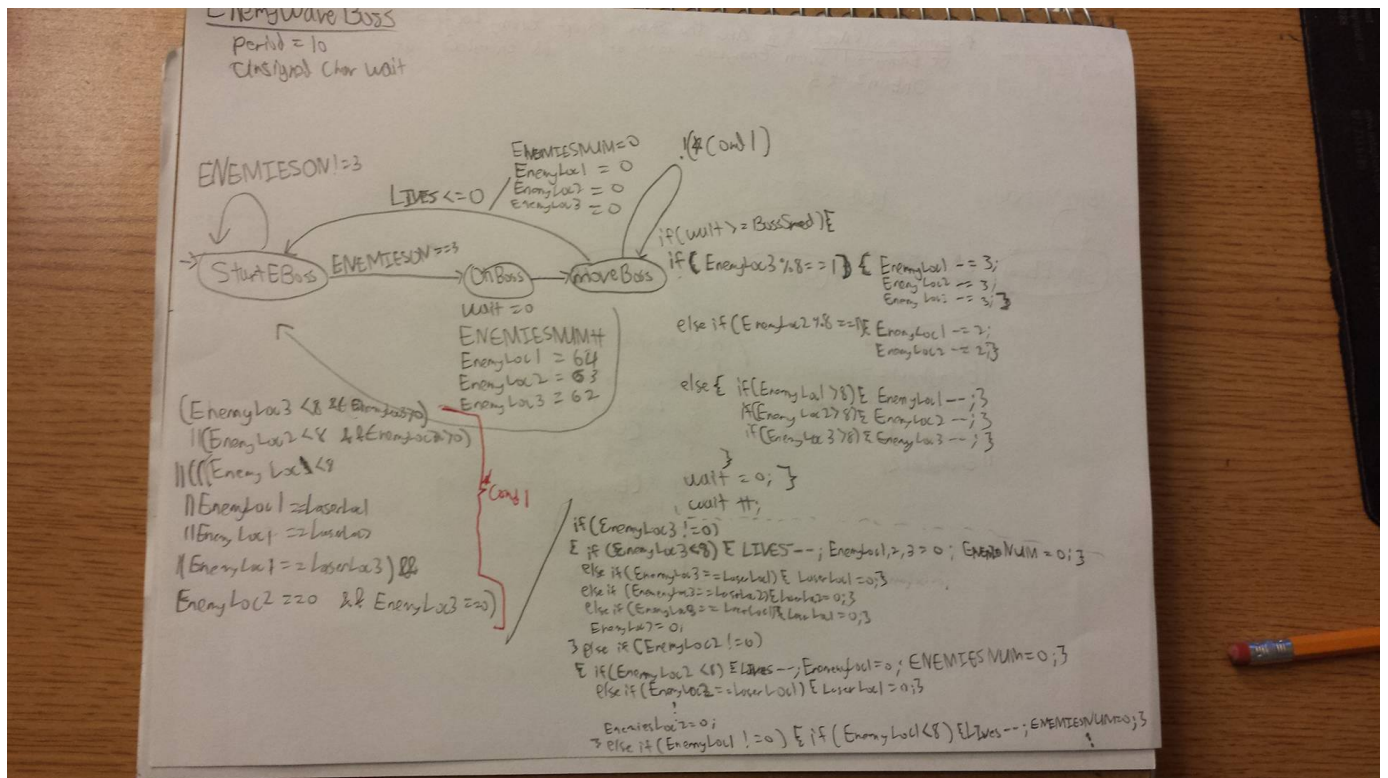 EnemyWaveBoss
period = 10
Unsigned Char wait
ENEMIESON != 3
LIVES <= 0
ENEMIESNUM = 0
EnemyLoc1 = 0
EnemyLoc2 = 0
EnemyLoc3 = 0
!(*Cond1)
StartEBoss
ENEMIESON == 3
OnBoss
moveBoss
wait = 0
ENEMIESNUM++
EnemyLoc1 = 64
EnemyLoc2 = 63
EnemyLoc3 = 62
if(wait >= BossSpeed){
if(EnemyLoc3 % 8 == 1) { EnemyLoc1 -= 3;
EnemyLoc2 -= 3;
-= 3; }
else if(EnemyLoc2 % 8 == 1){ EnemyLoc1 -= 2;
EnemyLoc2 -= 2;}
else { if(EnemyLoc1 > 8){ EnemyLoc1 --; }
if(EnemyLoc2 > 8){ EnemyLoc2 --; }
if(EnemyLoc3 > 8){ EnemyLoc3 --; }
}
wait = 0; }
wait ++;
(EnemyLoc3 < 8 && > 0)
||(EnemyLoc2 < 8 && EnemyLoc2 > 0)
||(((EnemyLoc1 < 8
||EnemyLoc1 == LaserLoc1
||EnemyLoc1 ==
||EnemyLoc1 == LaserLoc3) &&
EnemyLoc2 == 0 && EnemyLoc3 == 0)
*Cond1
if(EnemyLoc3 != 0)
{ if(EnemyLoc3 < 8) { LIVES--; EnemyLoc1,2,3 = 0; = 0; }
else if(EnemyLoc3 == LaserLoc1) { LaserLoc1 = 0; }
else if (EnemyLoc3 == LaserLoc2){ LaserLoc2 = 0; }
else if( == ){ = 0; }
= 0;
} else if (EnemyLoc2 != 0)
{ if(EnemyLoc2 < 8) { LIVES--; EnemyLoc1 = 0; ENEMIESNUM = 0; }
else if(EnemyLoc2 == LaserLoc1) { LaserLoc1 = 0; }
⋮
EnemiesLoc2 = 0;
} else if(EnemyLoc1 != 0) { if(EnemyLoc1 < 8) {Lives--; ENEMIESNUM = 0; }
⋮